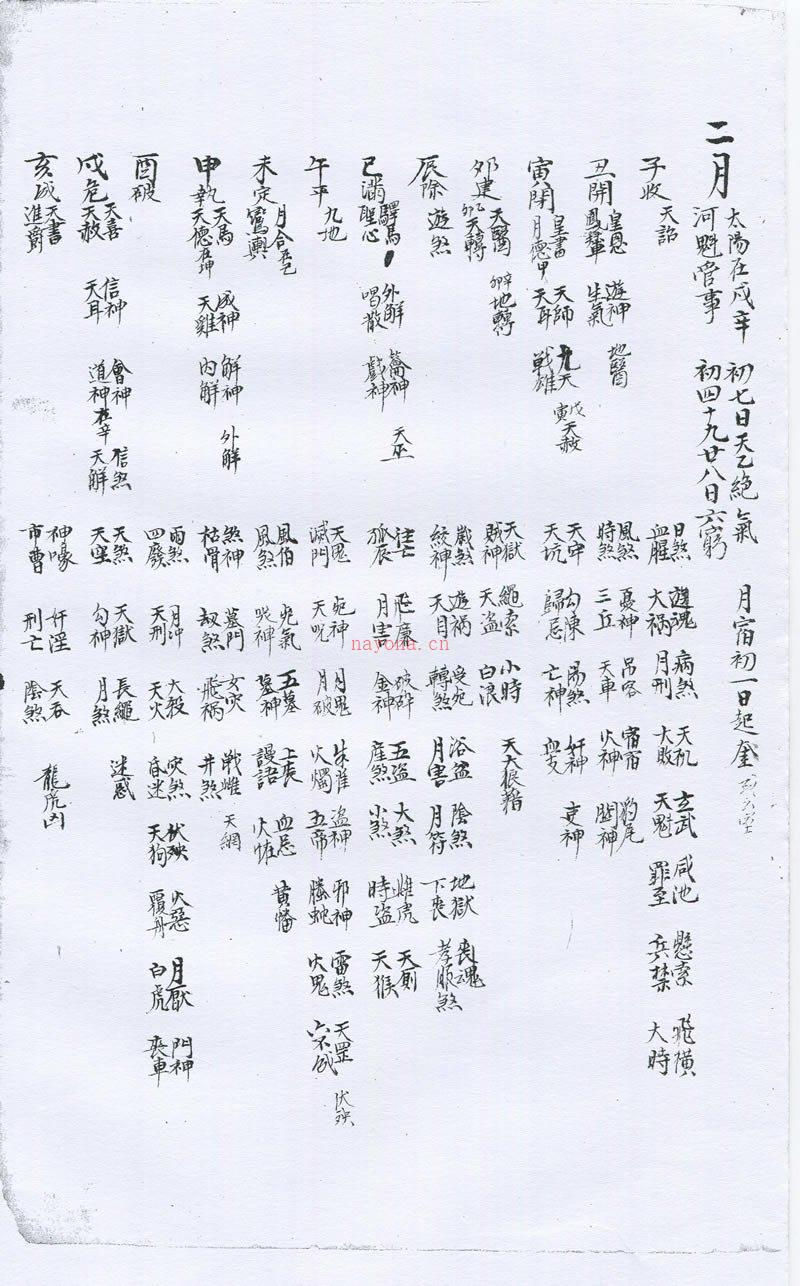 二月 太陽在戌辛 初七日天乙絕氣 月宿初一日起奎
河魁管事 初四十九廿八日六窮
子收 天詔 日煞 遊魂 病煞 天机 玄武 咸池 懸索 飛橫
血腥 大禍 月刑 大敗 天魁 罪至 兵禁 大時
丑開 皇恩 遊神 地醫 風煞 憂神 吊客 宿宿 豹尾
鳳輦 生氣 時煞 三丘 天車 火神 闘神
寅閉 皇書 天師 九天 戊寅天赦 天牢 勾陳 陽煞 奸神 吏神
月德甲 天耳 戦雄 天坑 歸忌 亡神 血支
夘建 天醫 天獄 繩索 小時 天大狼籍
夘乙天轉 夘辛地轉 賊神 天盜 白浪
辰除 遊煞 歲煞 遊禍 受死 浴盆 陰煞 地獄 喪魂
絞神 天目 轉煞 月害 月符 下喪 孝服煞
巳滿 驛馬 外解 篇神 天巫 往亡 飛廉 破碎 五盜 大煞 雌虎 天剛
聖心 唱散 戱神 孤辰 月害 金神 產煞 小煞 時盜 天猴
午平 九地 天鬼 死神 月鬼 朱雀 盜神 邪神 雷煞 天罡 伏殃
滅門 天呪 月破 火燭 五帝 螣蛇 火鬼 六不成
未定 月合在巳 風伯 死氣 五墓 上喪 血忌 黃幡
鸞輿 風煞 哭神 墓神 謾語 火怪
申執 天馬 成神 解神 外解 煞神 墓門 女灾 戦雌 天網
天德在坤 天雞 內解 枯骨 刼煞 飛禍 井煞
酉破 雨煞 月冲 大殺 灾煞 伏殃 火惡 月厭 門神
四廢 天刑 天火 昏迷 天狗 覆舟 白虎 喪車
戌危 天喜 信神 會神 信煞 天煞 天獄 長繩 迷惑
天赦 天耳 道神在辛 天解 天空 勾神 月煞
亥成 天書 神嚎 奸淫 天吞 龍虎凶
進爵 市曹 刑亡 陰煞
nayona.cn